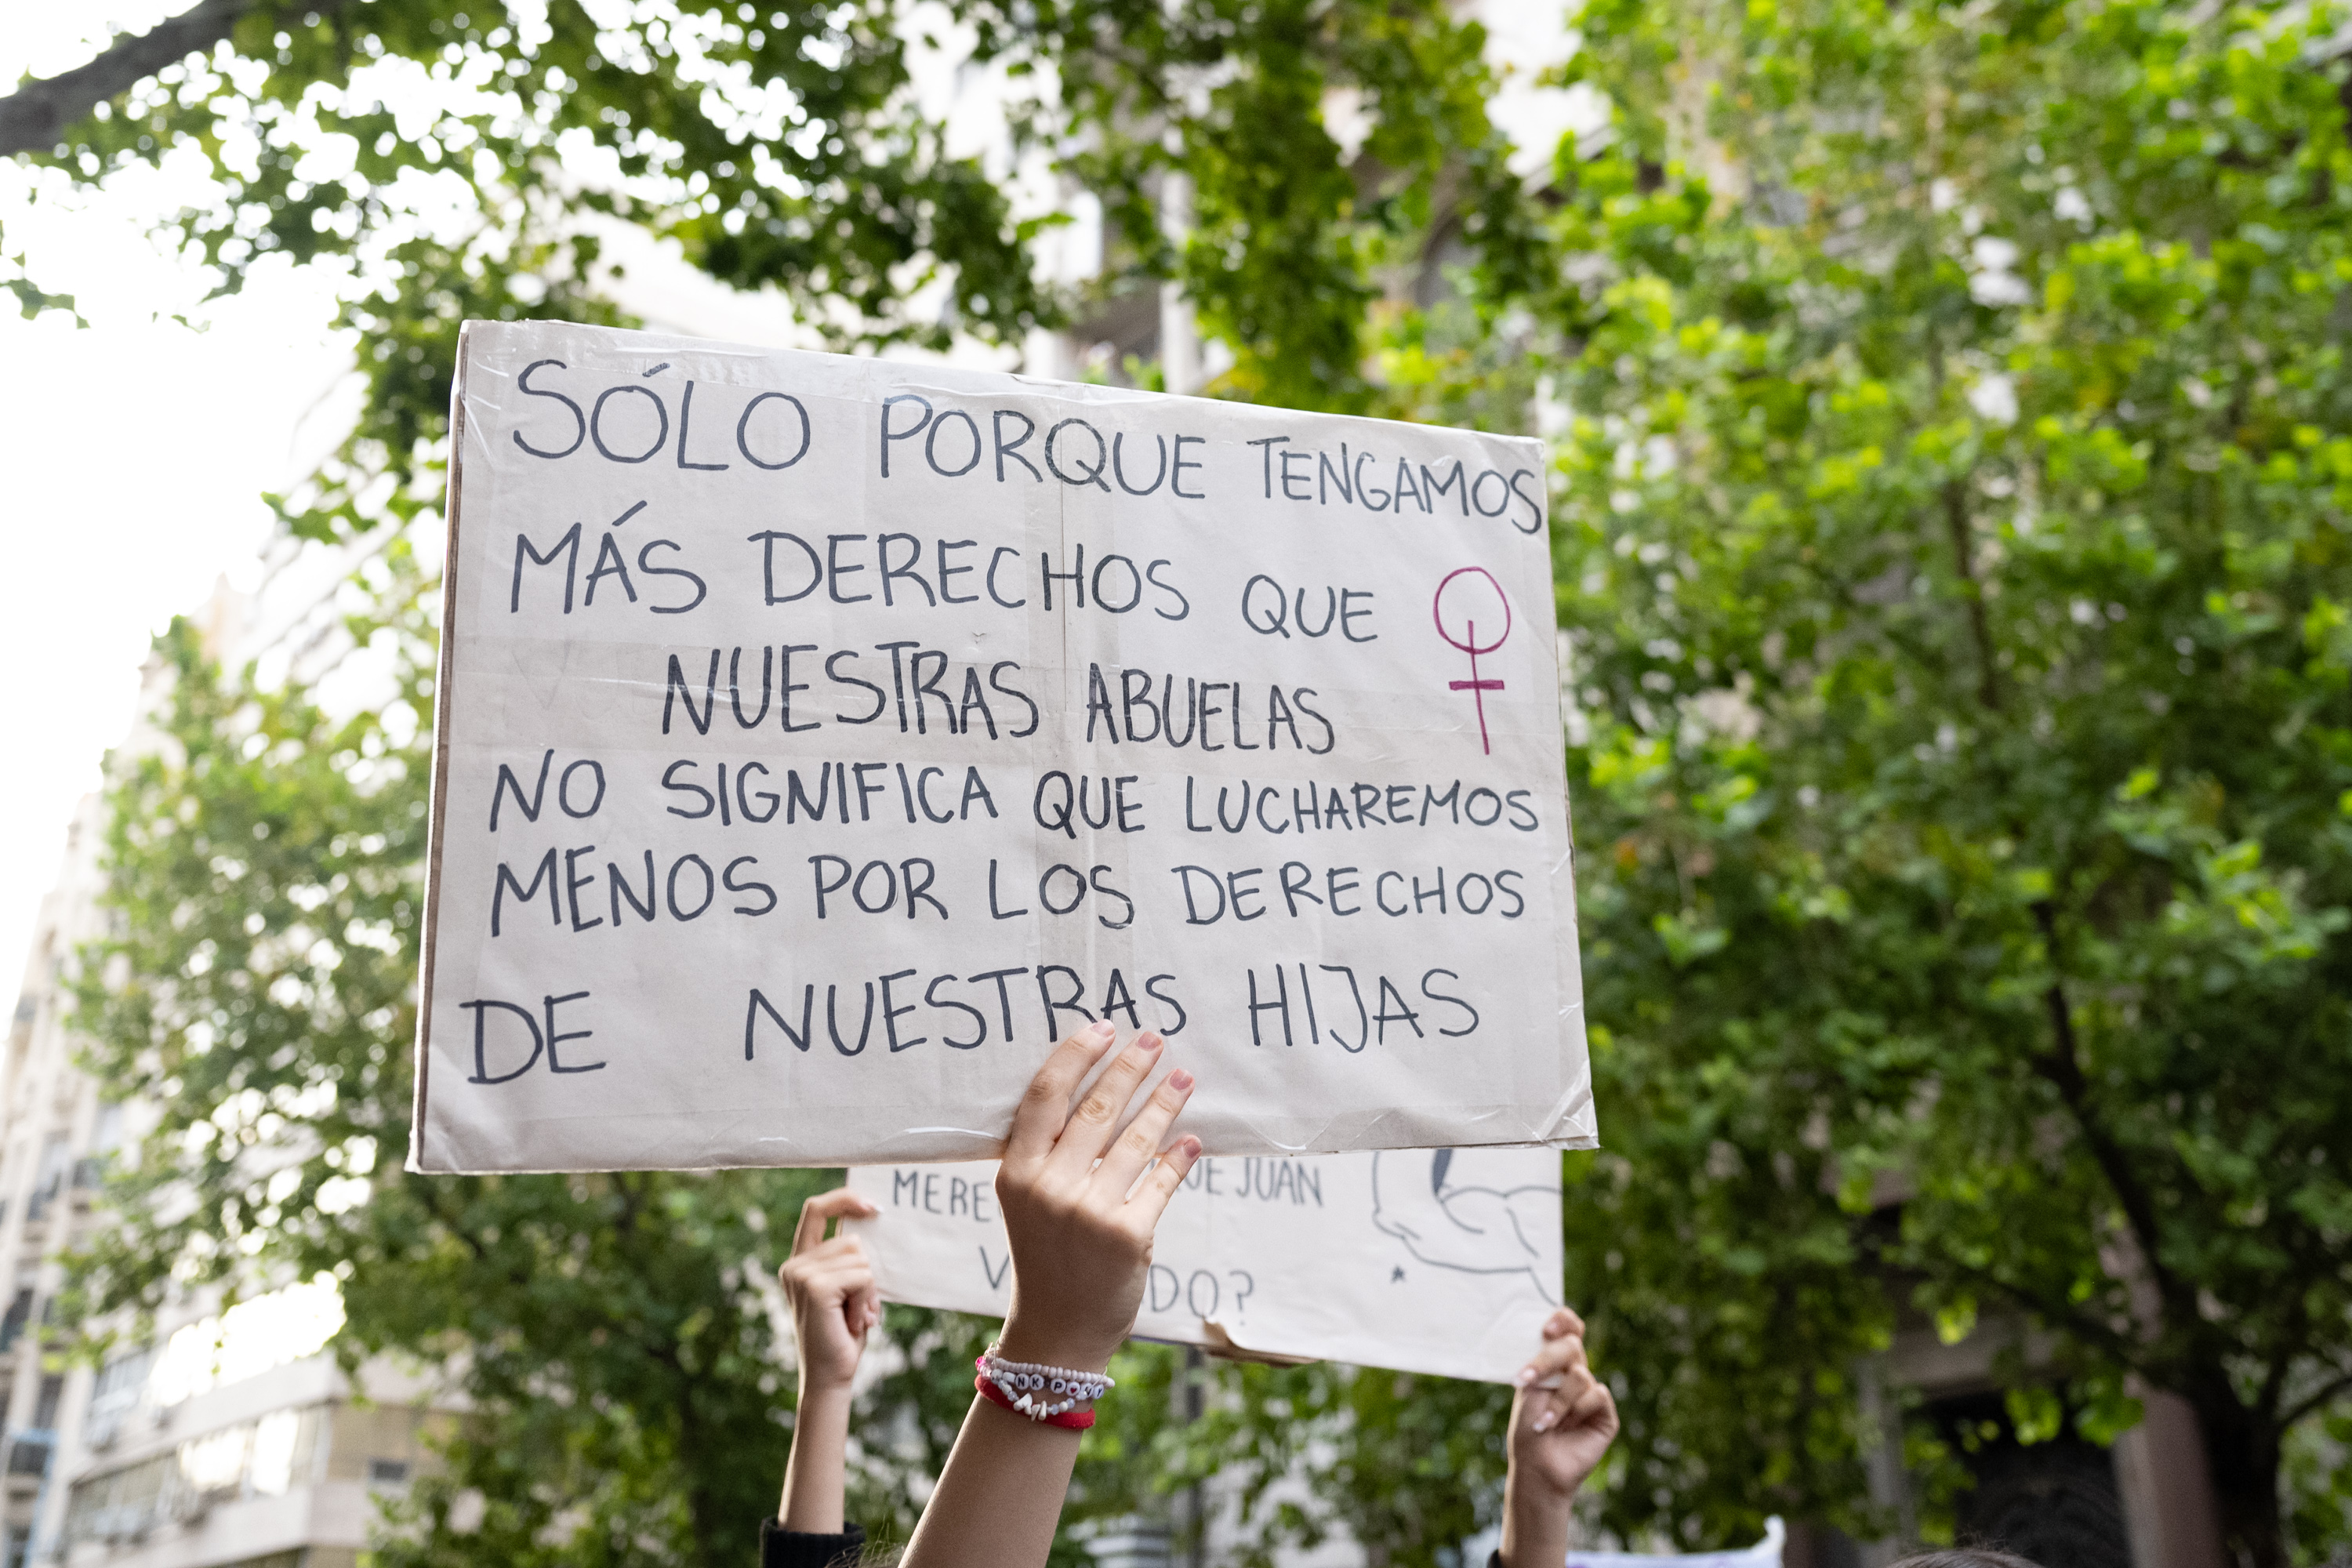 SÓLO PORQUE TENGAMOS
MÁS DERECHOS QUE
NUESTRAS ABUELAS
NO SIGNIFICA QUE LUCHAREMOS
MENOS POR LOS DERECHOS
DE NUESTRAS HIJAS
JUAN